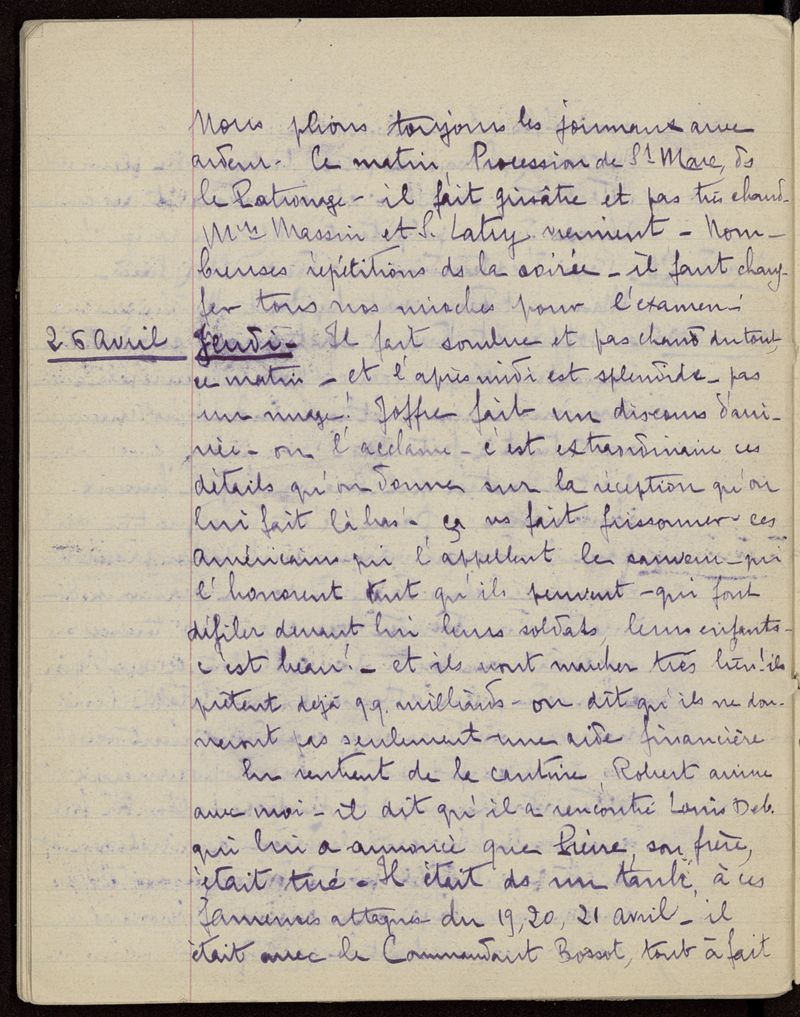 Nous plions toujours les journaux avec
ardeur. Ce matin, Procession de St Marc, ds
le Patronage - il fait grisâtre et pas très chaud.
Mrs Massin et S. Latry viennent - Nom-
breuses répétitions ds la soirée - il faut chauf-
fer tous nos mioches pour l'examen!
26 avril Jeudi - Il fait sombre et pas chaud du tout,
ce matin - et l'après midi est splendide - pas
un nuage! Joffre fait un discours d'arri-
vée - on l'acclame - c'est extraordinaire ces
détails qu'on donne sur la réception qu'on
lui fait là bas! - ça ns fait frissonner ces
Américains qui l'appellent le sauveur - qui
l'honorent tant qu'ils peuvent - qui font
défiler devant lui leurs soldats, leurs enfants -
c'est beau! - et ils vont marcher très bien! ils
prêtent déjà qq. milliards - on dit qu'ils ne don-
neront pas seulement une aide financière
En rentrant de la cantine, Robert arrive
avec moi - il dit qu'il a rencontré Louis Deb.
qui lui a annoncé que Pierre, son frère,
était tué - Il était ds un tank, à ces
fameuses attaques du 19, 20, 21 avril - il
était avec le Commandant Bossut, tout à fait